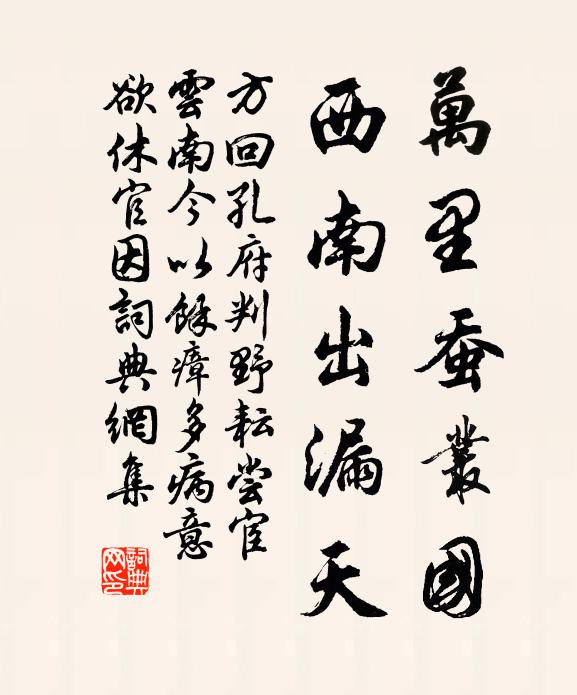 萬里蚕叢國
西南出漏天
方回孔府判野耘尝官
雲南今以餘瘴多病意
欲休官因詞典網集
詞典网印